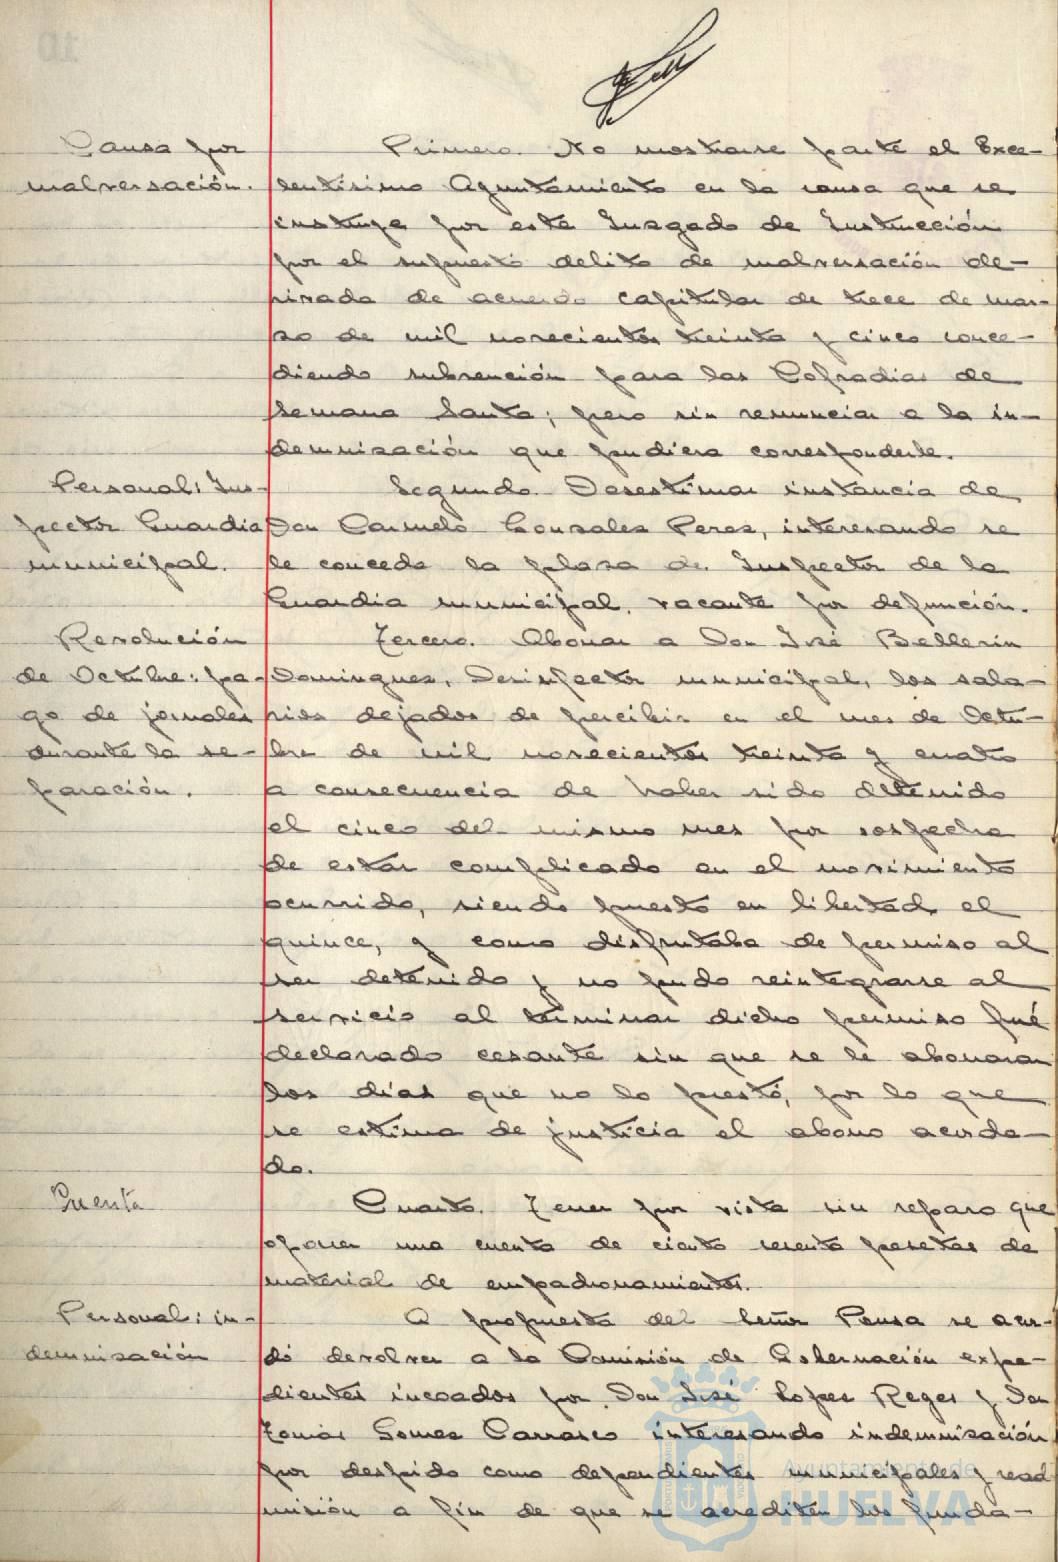 Causa por
malversación.
Primero. No mostrarse parte el Exce-
lentísimo Ayuntamiento en la causa que se
instruye por este Juzgado de Instrucción
por el supuesto delito de malversación de-
rivada de acuerdo capitular de trece de mar-
zo de mil novecientos treinta y cinco conce-
diendo subvención para las Cofradias de
Semana Santa; pero sin renunciar a la in-
demnización que pudiera corresponderle.
Personal: Ins-
pector Guardia
municipal.
Segundo. Desestimar instancia de
Don Carmelo Gonzales Peres, interesando se
le conceda la plaza de Inspector de la
Guardia municipal, vacante por defunción.
Revolución
de Octubre: pa-
go de jornales
durante la se-
paración.
Tercero. Abonar a Don José Bellerin
Domingues, Desinfector municipal, los sala-
rios dejados de percibir en el mes de Octu-
bre de mil novecientos treinta y cuatro
a consecuencia de haber sido detenido
el cinco del mismo mes por sospecha
de estar complicado en el movimiento
ocurrido, siendo puesto en libertad el
quince, y como disfrutaba de permiso al
ser detenido y no pudo reintegrarse al
servicio al terminar dicho permiso fué
declarado cesante sin que se le abonaran
los dias que no lo prestó, por lo que
se estima de justicia el abono acorda-
do.
Cuenta
Cuarto. Tener por vista sin reparo que
oponer una cuenta de ciento sesenta pesetas de
material de empadronamientos.
Personal: in-
demnización
A propuesta del Señor Ponsa se acor-
dó devolver a la Comisión de Gobernación expe-
dientes incoados por Don José Lopes Reges y Don
Tomás Gomes Carrasco interesando indemnización
por despido como dependientes municipales y read
misión a fin de que se acrediten los funda-
Ayuntamiento de
HUELVA